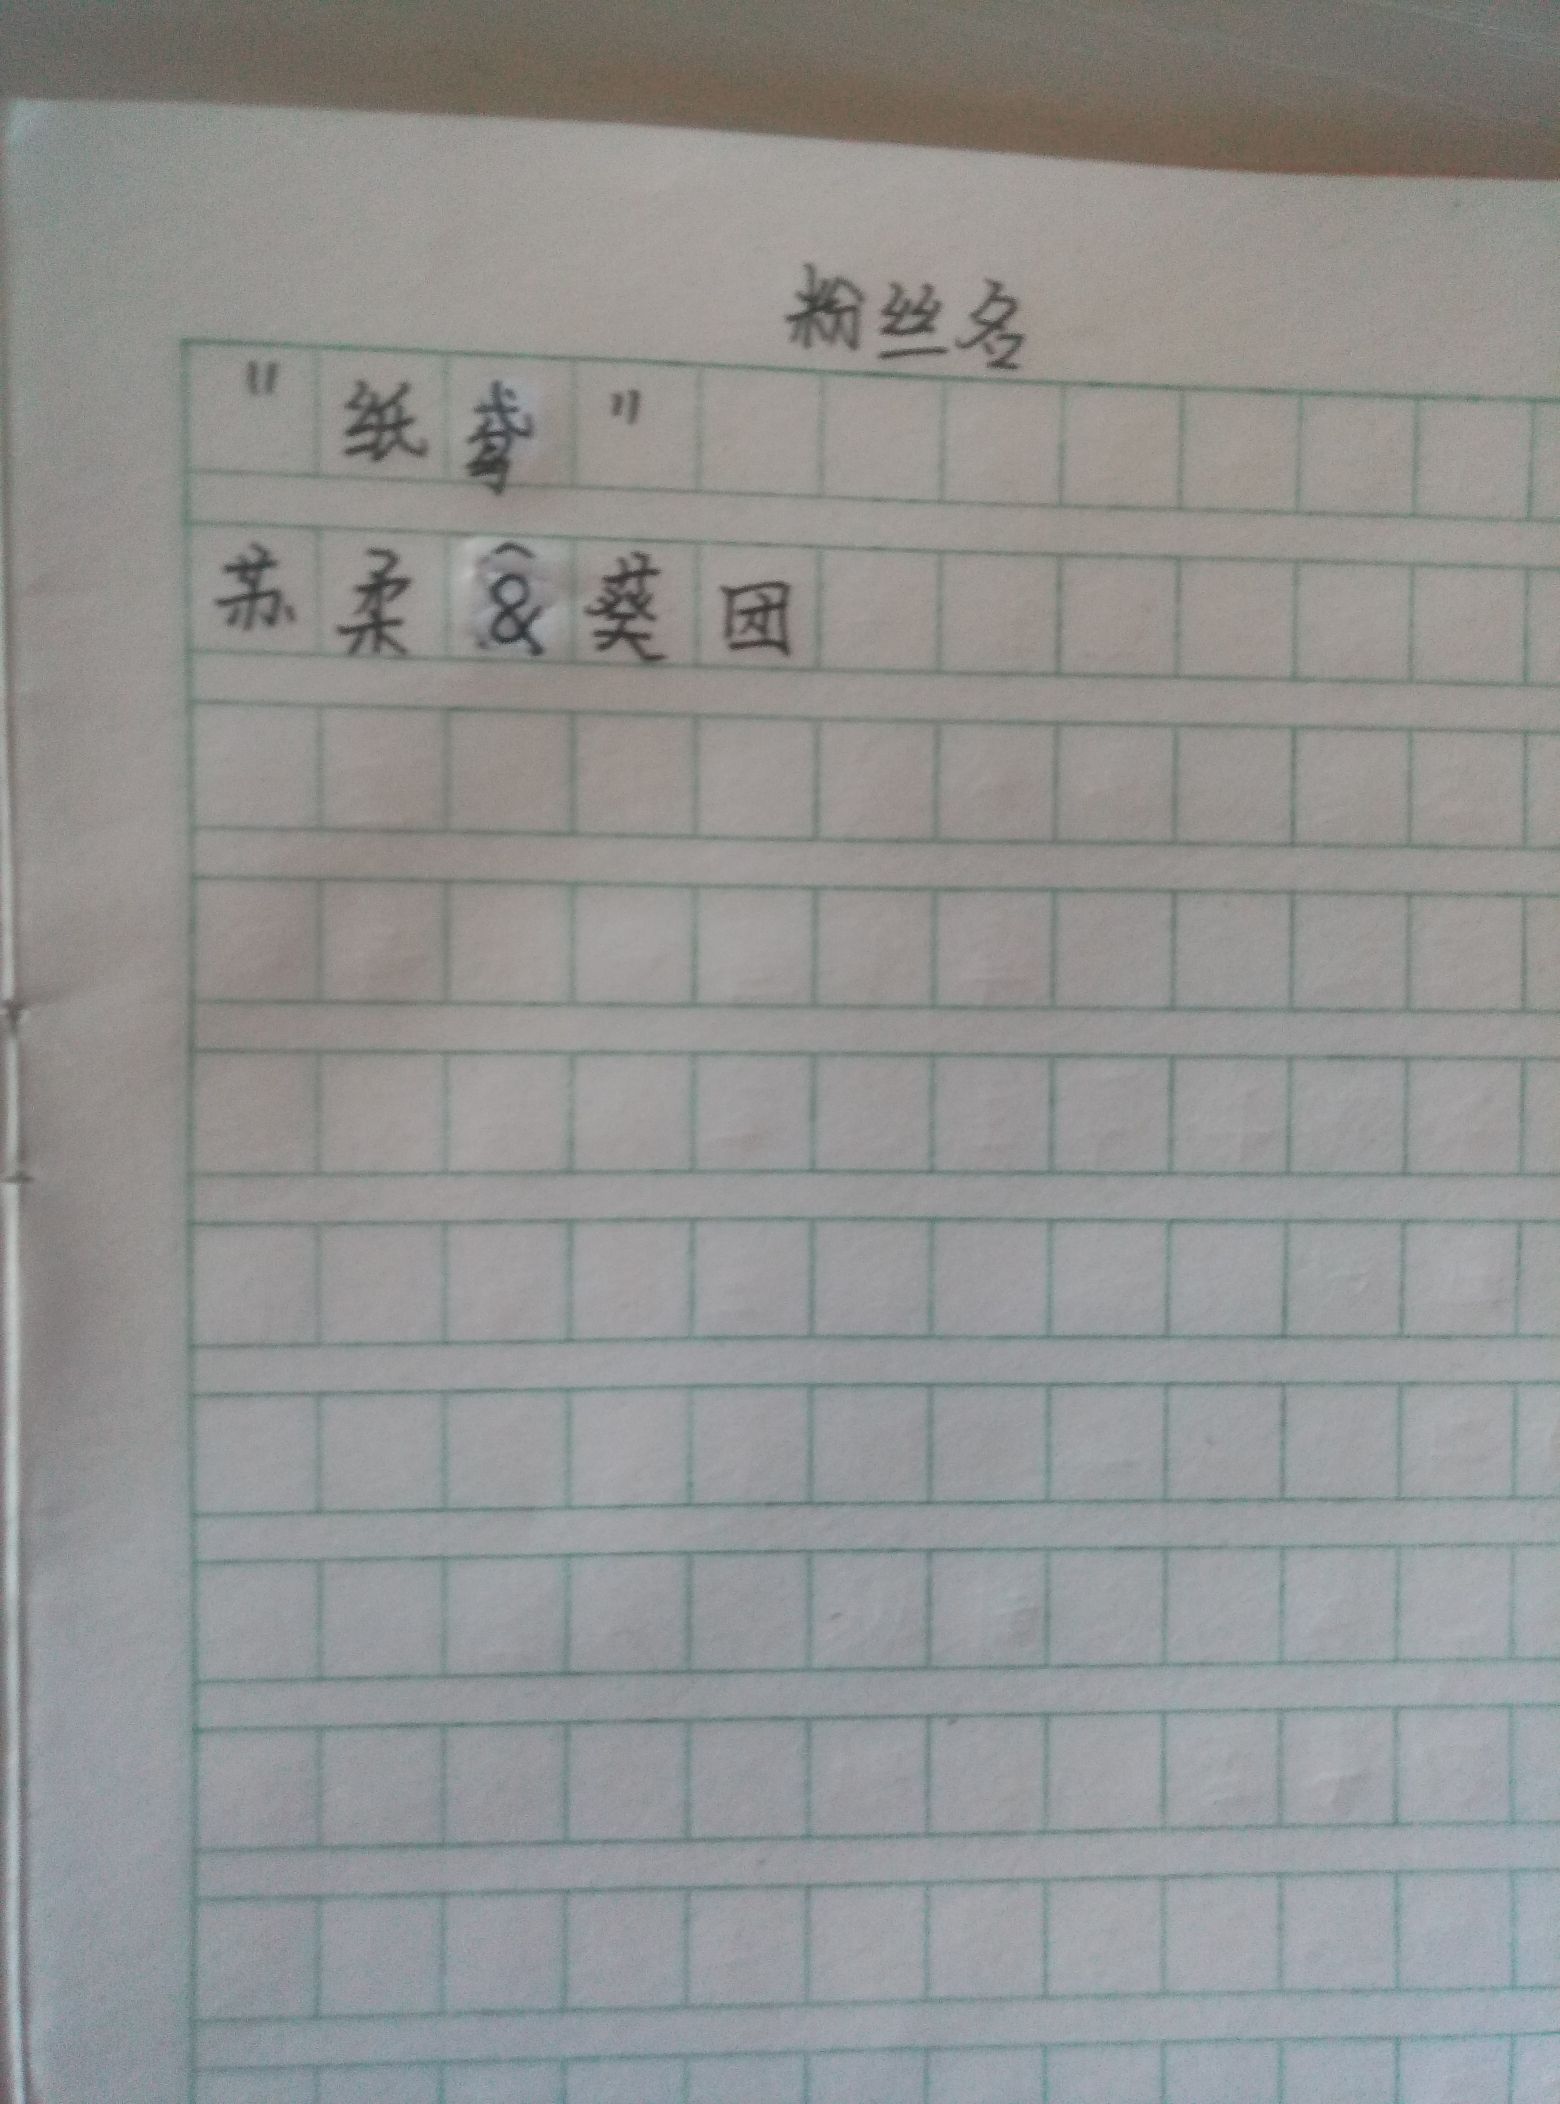 粉丝名
"纸鸢"
苏柔&葵团